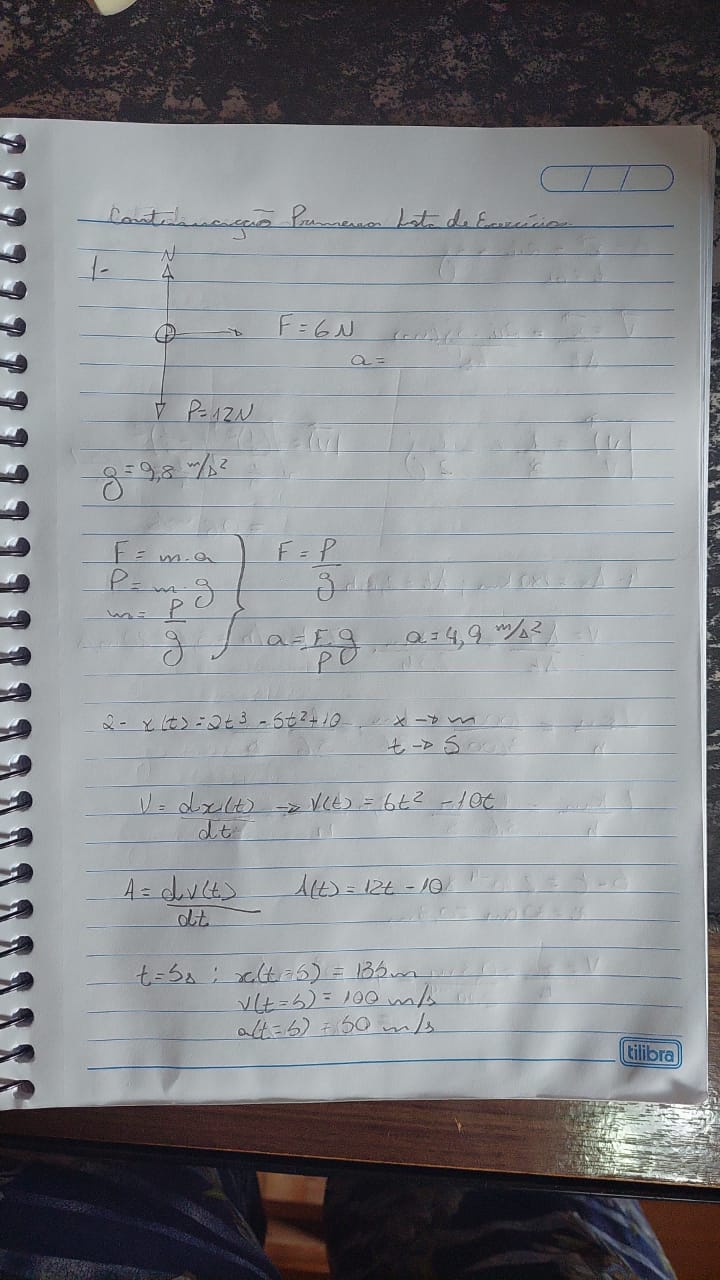 Continuação Primeira Lista de Exercícios
1-
N
F = 6N
a =
P = 12N
g = 9,8 m/s²
F = m.a
P = m.g
m = P/g
F = P/g
a = F.g/P
a = 4,9 m/s²
2- x(t) = 2t³ - 5t² + 10
x → m
t → S
V = dx(t)/dt → V(t) = 6t² - 10t
A = dv(t)/dt A(t) = 12t - 10
t = 5s : x(t=5) = 135m
v(t=5) = 100 m/s
a(t=5) = 50 m/s
tilibra